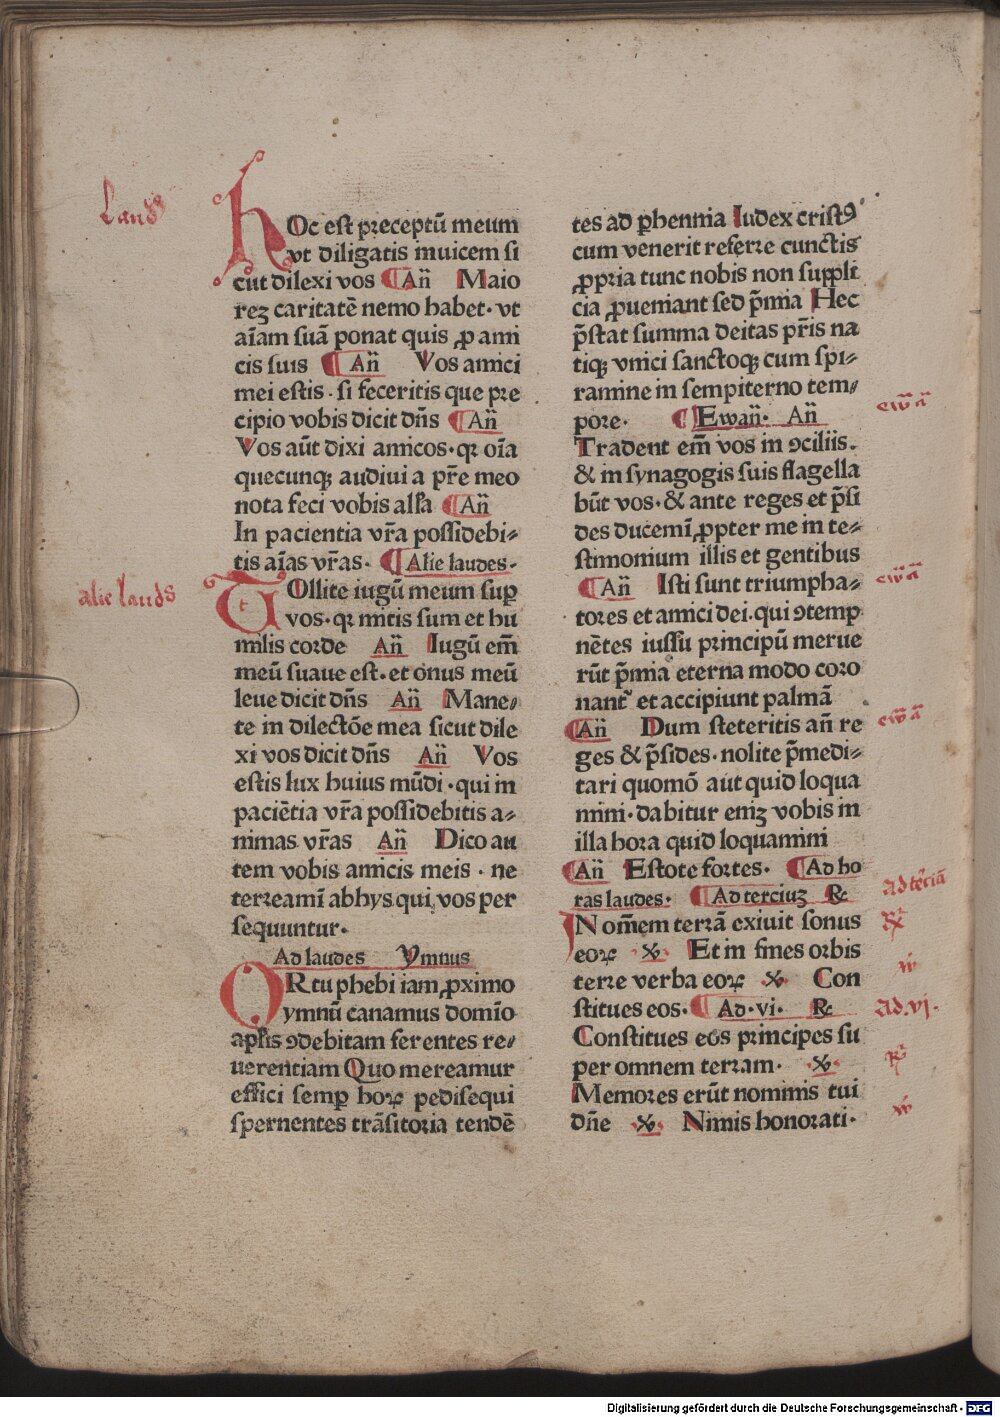 Laudes
hOc est preceptū meum
vt diligatis inuicem si
cut dilexi vos ¶ Añ Maio
reȝ caritatē nemo habet· vt
aīam suā ponat quis ꝓ ami
cis suis ¶ Añ Vos amici
mei estis · si feceritis que pre
cipio vobis dicit dn̄s ¶ Añ
Vos aūt dixi amicos· qꝛ oīa
quecunqꝫ audiui a pr̄e meo
nota feci vobis alła ¶ Añ
In pacientia vr̄a possidebi⸗
tis aīas vr̄as· ¶ Alie laudes·
alie laudes
TOllite iugū meum suꝑ
vos· qꝛ mitis sum et hu
milis corde Añ Iugū em̄
meū suaue est· et onus meū
leue dicit dn̄s Añ Mane⸗
te in dilectōe mea sicut dile
xi vos dicit dn̄s Añ Vos
estis lux huius mūdi · qui in
paciētia vr̄a possidebitis a⸗
nimas vr̄as Añ Dico au
tem vobis amicis meis · ne
terreamī abhys qui vos per
sequuntur·
Ad laudes Ymnus
ORtu phebi iam ꝓximo
ymnū canamus domīo
apłis ꝯdebitam ferentes re⸗
uerentiam Quo mereamur
effici semꝑ hoꝝ pedisequi
spernentes trāsitoria tendē
tes ad ꝑhennia Iudex cristꝯ
cum venerit referre cunctis
ꝓpria tunc nobis non suppli
cia ꝓueniant sed p̄mia Hec
p̄stat summa deitas pr̄is na
tiqꝫ vnici sanctoqꝫ cum spi⸗
ramine in sempiterno tem⸗
pore· ¶ Ewan̄· Añ
ewā ā
Tradent em̄ vos in ꝯciliis.
& in synagogis suis flagella
būt vos· & ante reges et p̄si
des ducemī ꝓpter me in te⸗
stimonium illis et gentibus
¶ Añ Isti sunt triumpha⸗
ewā ā
tores et amici dei. qui ꝯtemp
nētes iussu principū merue
rūt p̄mia eterna modo coro
nant᷑ et accipiunt palmā
¶ Añ Dum steteritis an̄ re
ewā ā
ges & p̄sides· nolite p̄medi⸗
tari quomō aut quid loqua
mini· dabitur eniȝ vobis in
illa hora quid loquamini
¶ Añ Estote fortes· ¶ Ad ho
ras laudes· ¶ Ad terciuȝ ℟
Ad terciā
IN om̄em terrā exiuit sonus
℟
eoꝝ ℣ Et in fines orbis
terre verba eoꝝ ℣ Con
℣
stitues eos· ¶ Ad·vi· ℟
Ad.vj.
Constitues eos principes su
per omnem terram· ℣
℟
Memores erūt nominis tui
℣
dn̄e ℣ Nimis honorati·
Digitalisierung gefördert durch die Deutsche Forschungsgemeinschaft - DFG